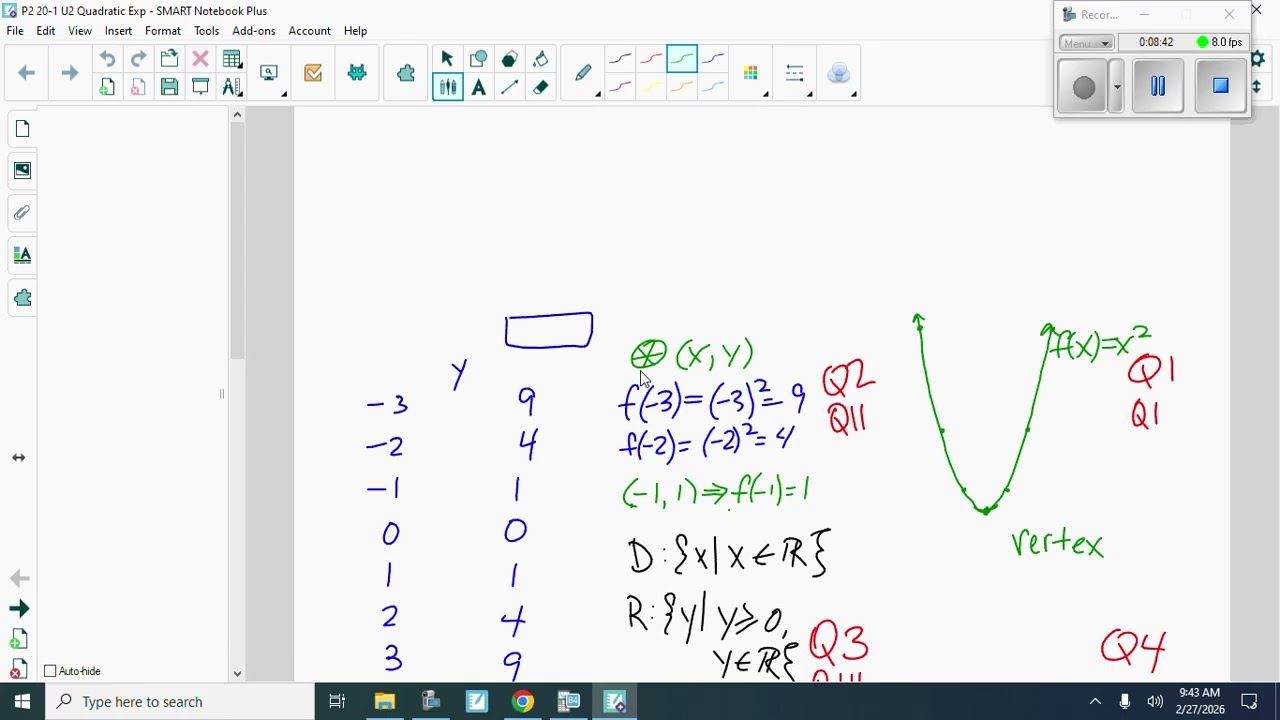 P2 20-1 U2 Quadratic Exp - SMART Notebook Plus
File Edit View Insert Format Tools Add-ons Account Help
Recor...
Menu... 0:08:42 8.0 fps
Y
⊛ (x, y)
f(x)=x²
-3 9 f(-3)=(-3)²=9 Q2 Q1
-2 4 f(-2)=(-2)²=4 QII QI
-1 1 (-1,1)⇒f(-1)=1
0 0 D:{x|x∈ℝ} vertex
1 1
2 4 R:{y|y≥0,
3 9 y∈ℝ} Q3 Q4
Auto-hide
Type here to search
9:43 AM
2/27/2026